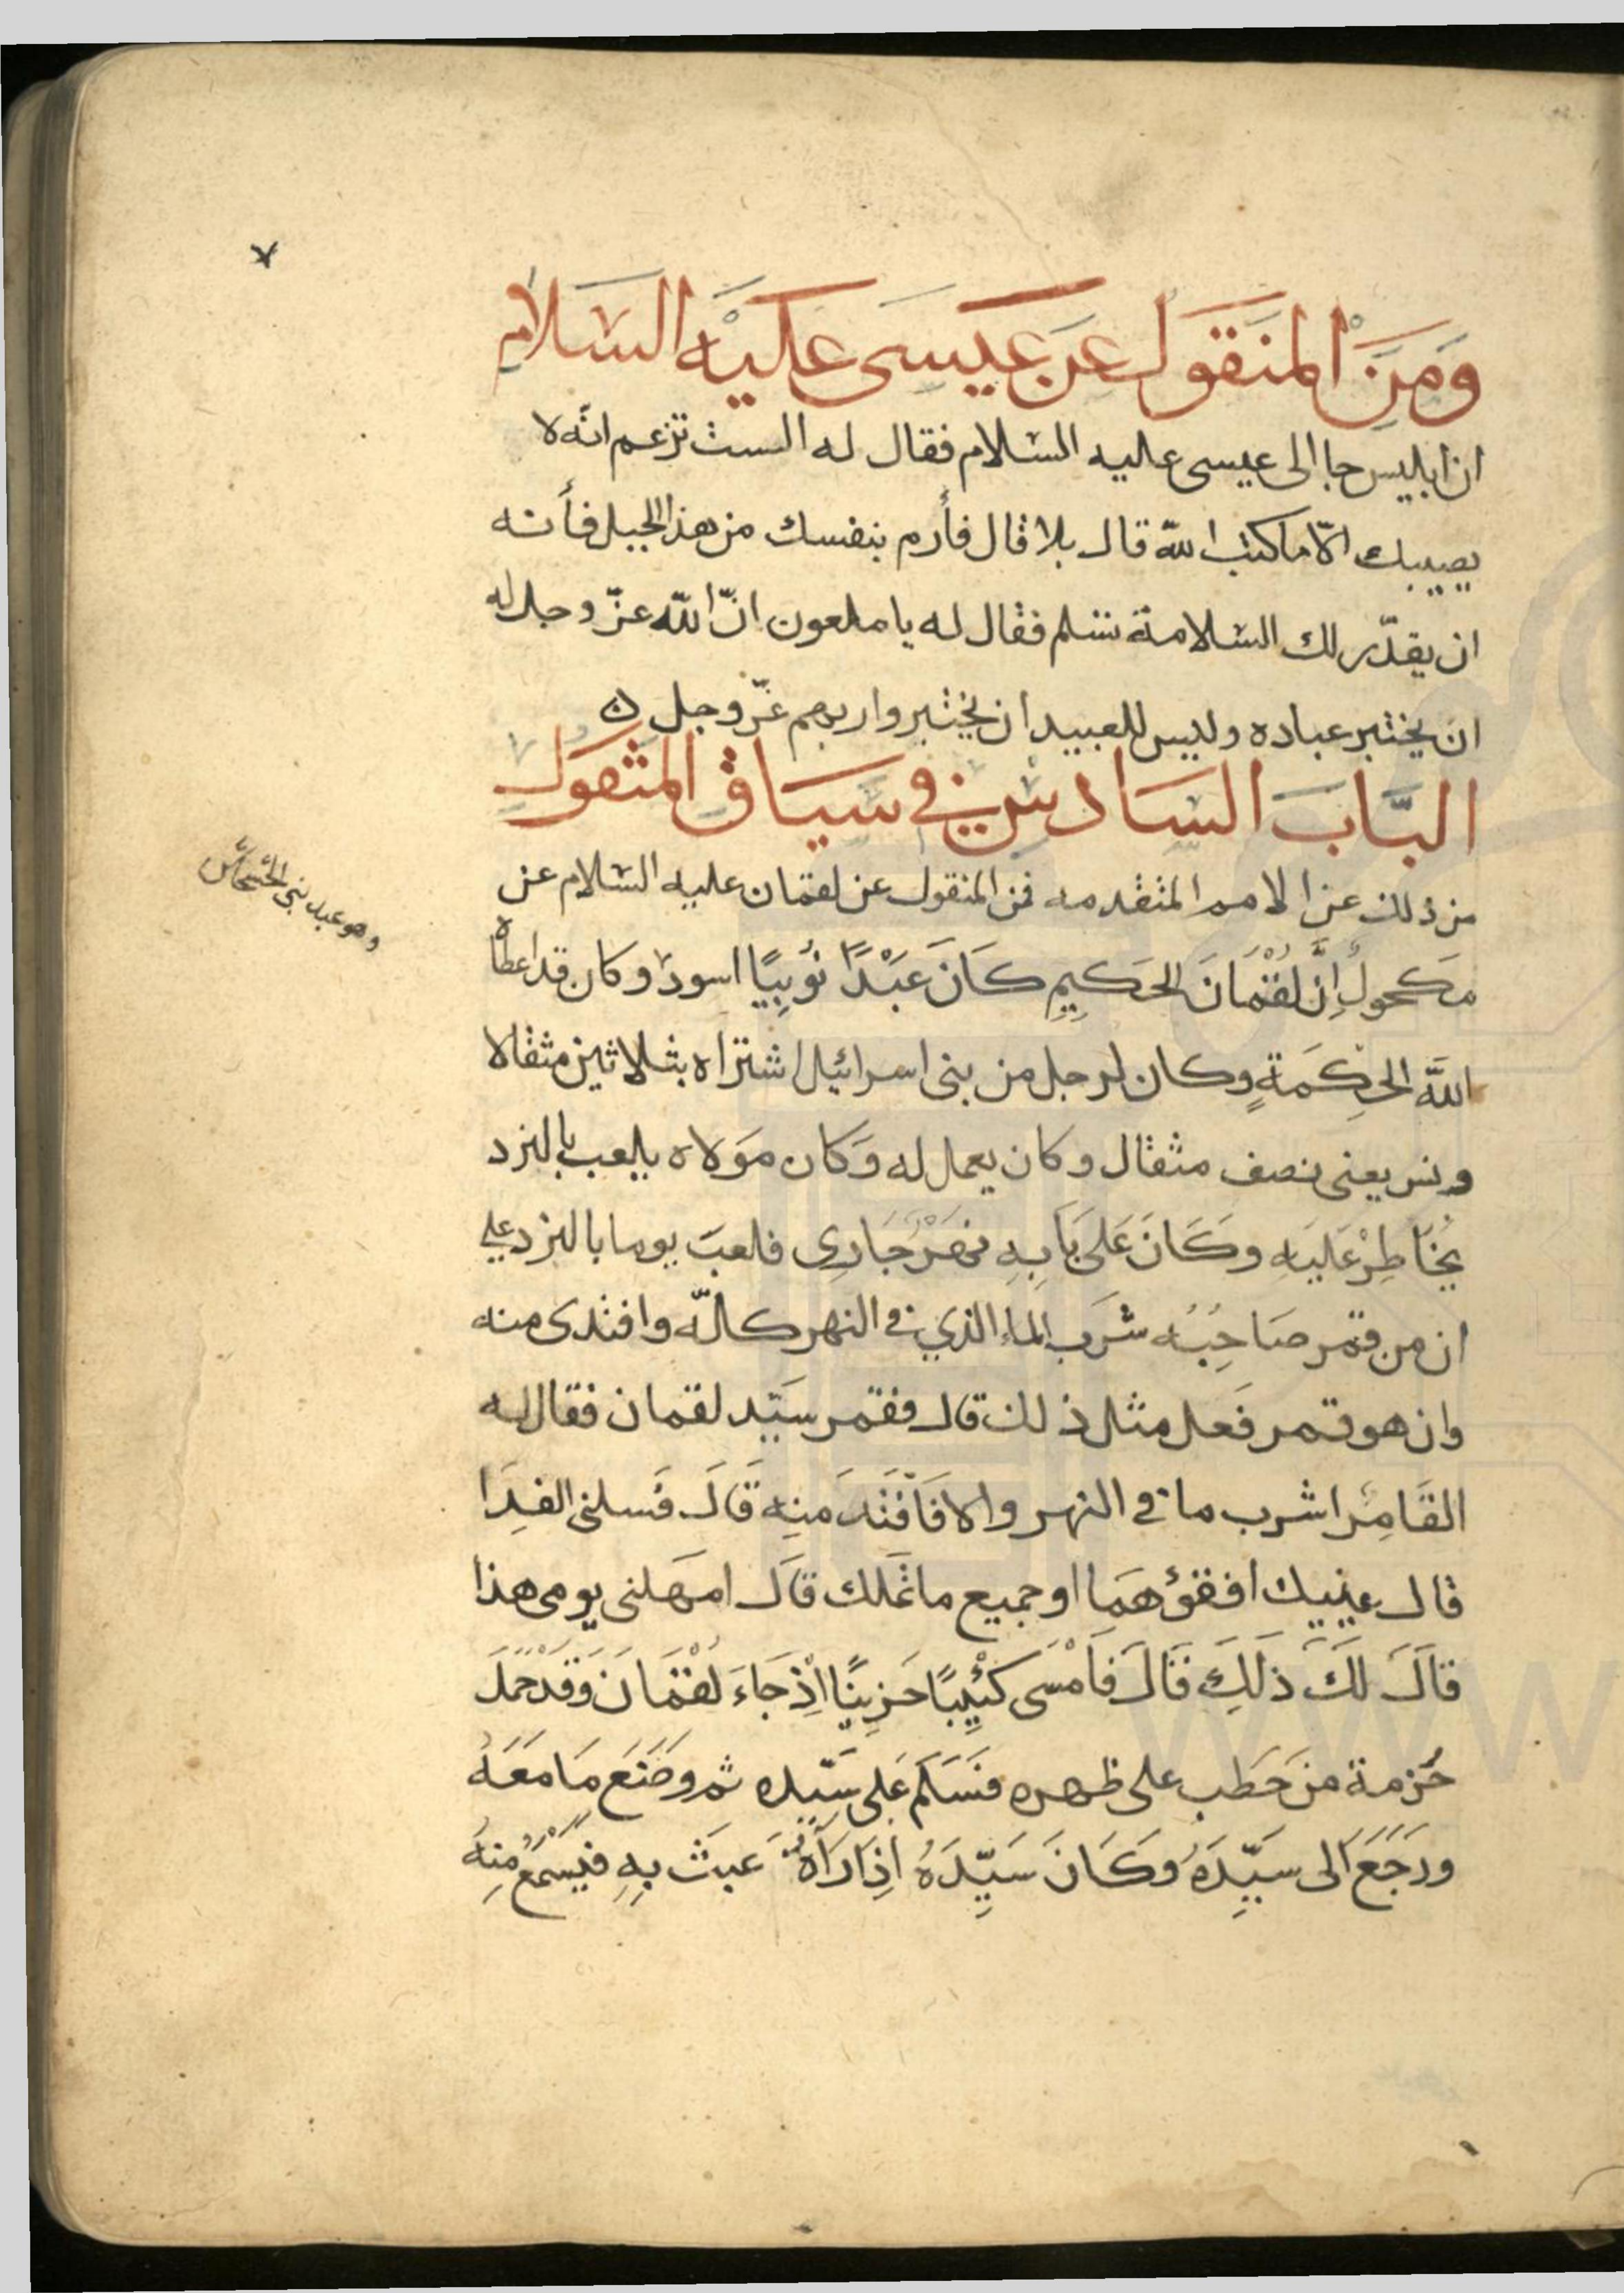 وَمَنَ المنقَول عَن عَيسَى عَليَه السَلام
ان ابليس جا الى عيسى عليه السلام فقال له الست تزعم انّه لا
يصيبك الّا ما كتب اللّه قال بلا قال فأرم بنفسك من هذا الجبل فأنه
ان يقدّر لك السلامة تسلم فقال له يا ملعون انّ اللّه عزّ وجل له
ان يختبر عباده وليس للعبيد ان يختبروا ربهم عزّ وجل ن
البَّابَ السَادس في سَيَاق المنقول
من ذلك عن الامم المتقدمه فمن المنقول عن لقمان عليه السلام عن
مَكحولُ إنَّ لُقْمَانَ الحَكيمِ كَانَ عَبْدًا نُوبِيًا اسود وكان قد اعطاه
اللَّه الحِكمَةٍ وكان لرجل من بنى اسرائيل اشتراه بثلاثين مثقالا
ونس يعنى نصف مثقال وكان يعمل له وَكان مَولاه يلعب بالنرد
يُخَاطِرْ عَليَه وكَانَ عَلى بَابِهِ نَهَرْ جَارِى فلعبَ يوما بالنرد على
ان من قمر صَاحِبُه شَرَب الماء الذي في النهر كلّه وافتدى منه
وان هو قمر فَعل مثل ذلك قال فقمر سيّد لقمان فقال له
القَامِر اشرب ما في النهر والا فَافْتَدَ منِه قَالَ فَسلنى الفِدَا
قال عينيك افقؤهمَا او جميع ما تملك قال امهَلنى يومى هذا
قاَلَ لكَ ذَلِكَ قَالَ فاَمْسَى كئِيبًا حَزِينًا اِذْ جَاءَ لُقْمَانَ وَقَدْ حَمَلَ
حُزمة من حَطَب على ظهره فسَلَّم عَلى سَيّده ثم وضَعَ مَا مَعَهُ
ورَجَعَ اَلى سَيِّدَهُ وكَانَ سَيِّدَهُ اِذَا رَآهُ عَبثَ بِهِ فيَسْمَعُ مِنِهُ
وهو عبد بنى الحسحاس